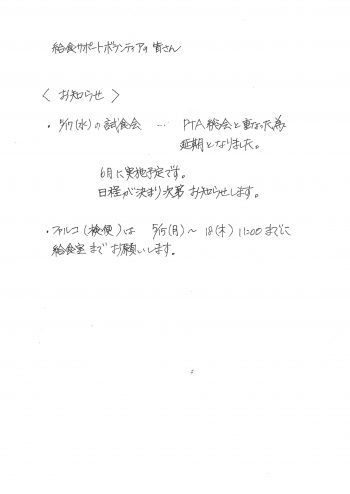 給食サポートボランティアの皆さん
〈 お知らせ 〉
・5/17(水)の試食会 … PTA総会と重なった為
延期となりました。
6月に実施予定です。
日程が決まり次第お知らせします。
・フォルコ(検便)は 5/15(月)～18(木) 11:00までに
給食室までお願いします。